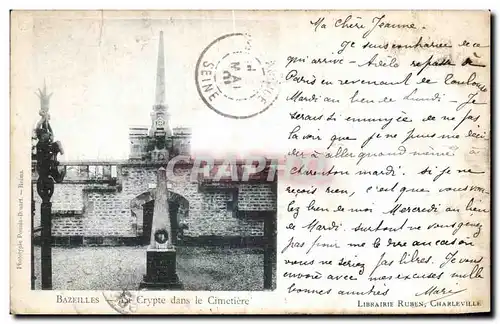 Ma Chère Jeanne.
Je suis contrariée de ce
qui arrive - Adèle repasse à
Paris en revenant de
Mardi au lieu de Lundi. Je
serais si ennuyée de ne pas
la voir que je ne puis me déci
der à aller quand même à
Charenton mardi. si je ne
reçois rien, c'est que vous vou
lez bien de moi Mercredi au lieu
de Mardi. surtout ne vous gênez
pas pour me le dire au cas où
vous ne seriez pas libres. Je vous
envoie avec mes excuses mille
bonnes amitiés Marie
SEINE
MAI
CHAPITRE
Phototypie Ponsin-Druart. - Reims
BAZEILLES - Crypte dans le Cimetière
LIBRAIRIE RUBEN, CHARLEVILLE